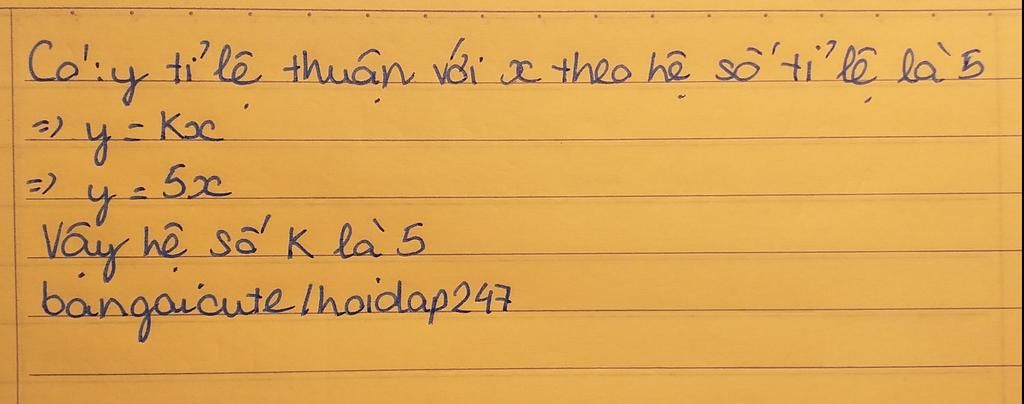 Có: y tỉ lệ thuận với x theo hệ số tỉ lệ là 5
=> y = Kx
=> y = 5x
Vậy hệ số K là 5
bangaicute/hoidap247